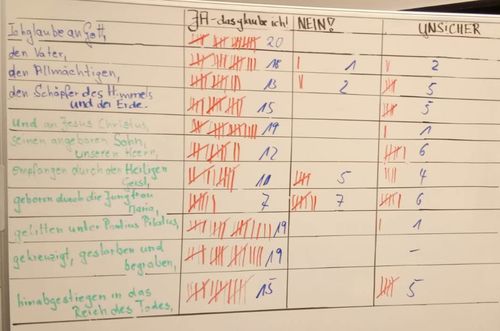 JA - das glaube ich! NEIN! UNSICHER
Ich glaube an Gott, 20
den Vater, 18 1 2
den Allmächtigen, 13 2 5
den Schöpfer des Himmels
und der Erde. 15 5
Und an Jesus Christus, 19 1
seinen angeboren Sohn,
unseren Herrn, 12 6
empfangen durch den Heiligen
Geist, 10 5 4
geboren durch die Jungfrau
Maria, 7 7 6
gelitten unter Pontius Pilatus, 19 1
gekreuzigt, gestorben und
begraben, 19 -
hinabgestiegen in das
Reich des Todes, 15 5